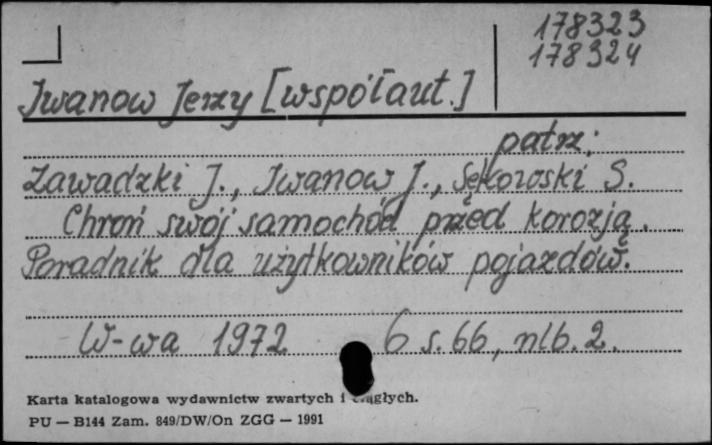 178323
178324
Iwanow Jerzy [współaut.]
patrz:
Zawadzki J., Iwanow J., Sękowski S.
Chroń swój samochód przed korozją.
Poradnik dla użytkowników pojazdów.
W-wa 1972 6 s. 66, nlb. 2.
Karta katalogowa wydawnictw zwartych i
PU — B144 Zam. 849/DW/On ZGG — 1991